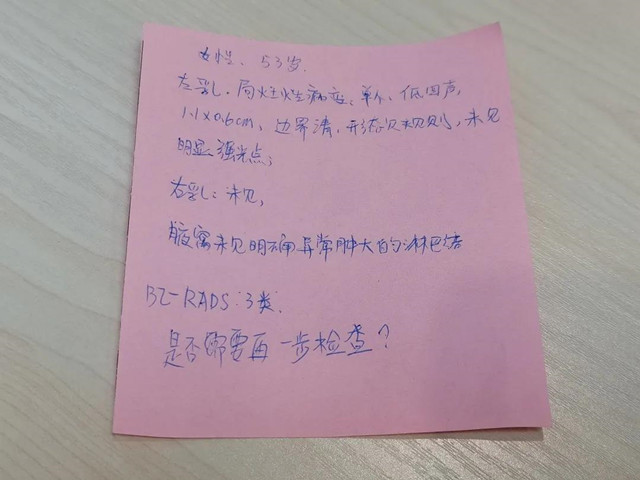 女性、53岁.
左乳.局灶性病症、单个、低回声,
1.1x0.6cm、边界清,形态见规则,未见
明显强光点;
右乳:未见,
腋窝未见明确异常肿大的淋巴结
BI-RADS:3类.
是否需要再一步检查?